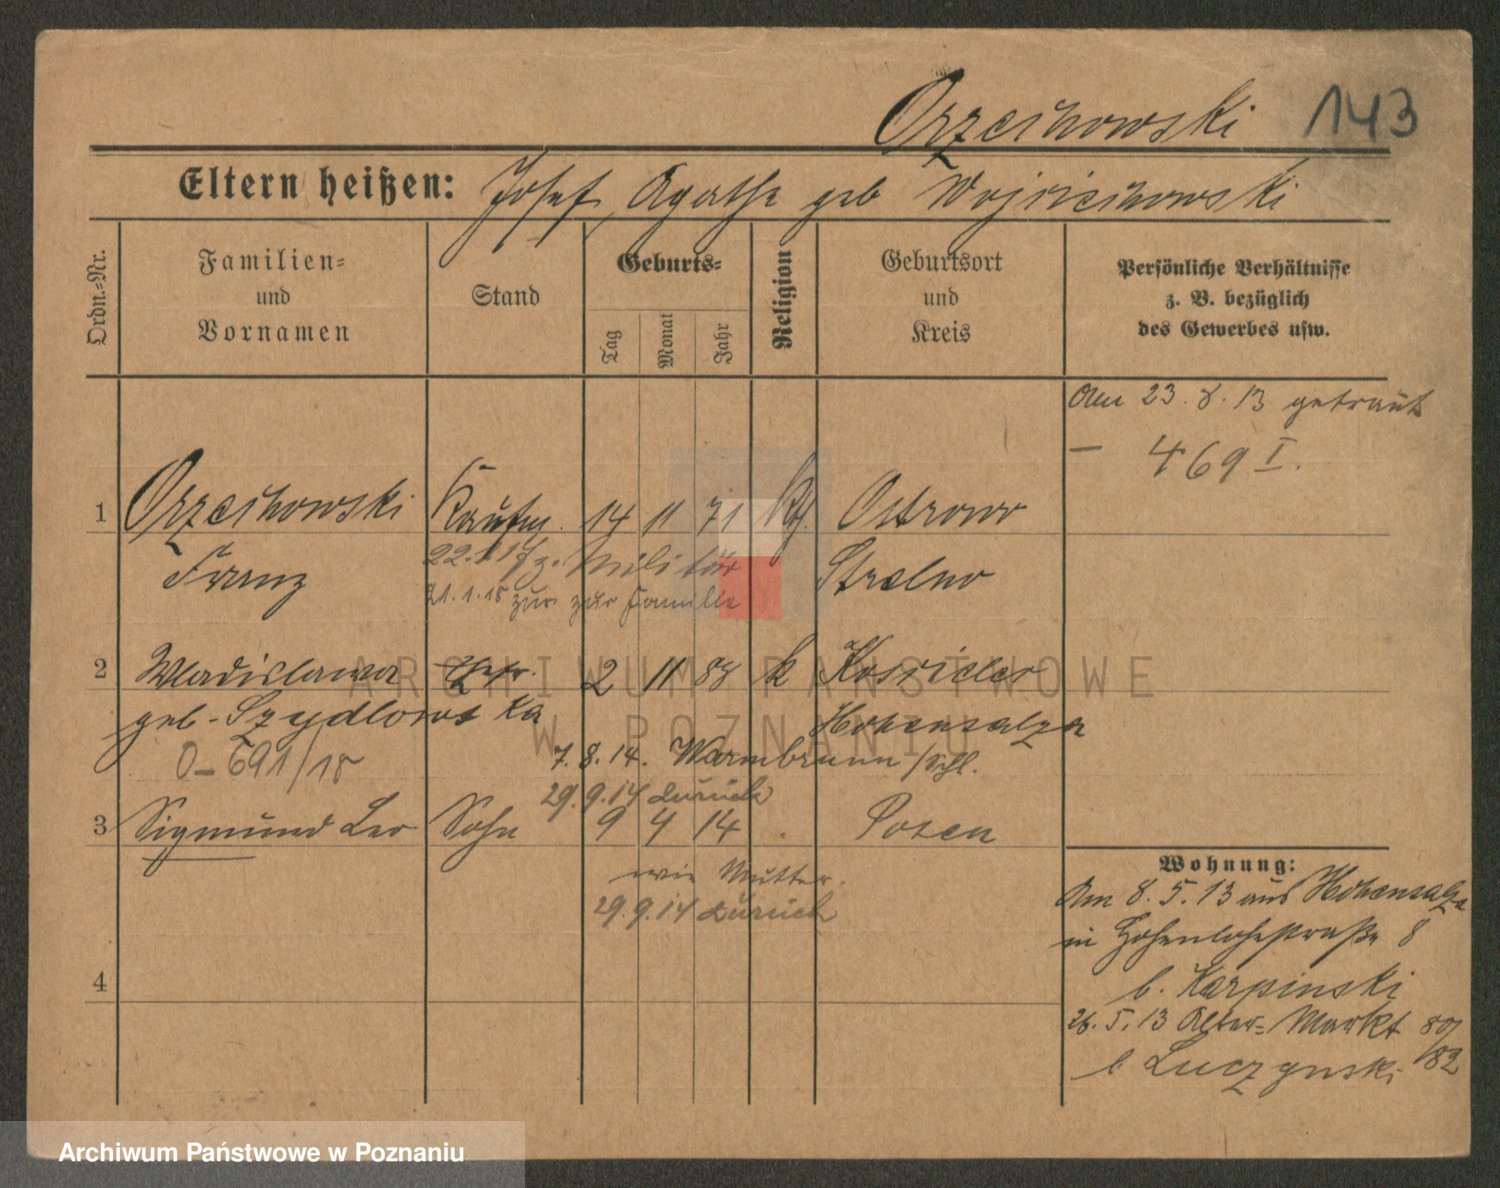 Orzechowski 143
Eltern heißen: Josef, Agathe geb Wojciechowski
Ordn.-Nr.
Familien-
und
Vornamen
Stand
Geburts-
Tag
Monat
Jahr
Religion
Geburtsort
und
Kreis
Persönliche Verhältnisse
z. B. bezüglich
des Gewerbes usw.
Am 23.8.13 getraut
– 469 I.
1 Orzechowski Kaufm. 14 11 71 Kth. Ostrowo
Franz Strelno
z. Militär
21.1.18 zur Familie
2 Wladislawa 2 11 88 k
geb. Szydlowska Hohensalza
O–691/18
7.8.14. Warmbrunn /Schl.
29.9.14 zurück
3 Sigmund Leo Sohn 9 4 14 . Posen
wie Mutter.
29.9.14 zurück
4
Wohnung:
Am 8.5.13 aus Hohensalza
in Hohenlohestraße 8
b. Karpinski
26.5.13 Alter-Markt 80/82
b Luczynski
ARCHIWUM PAŃSTWOWE
W POZNANIU
Archiwum Państwowe w Poznaniu